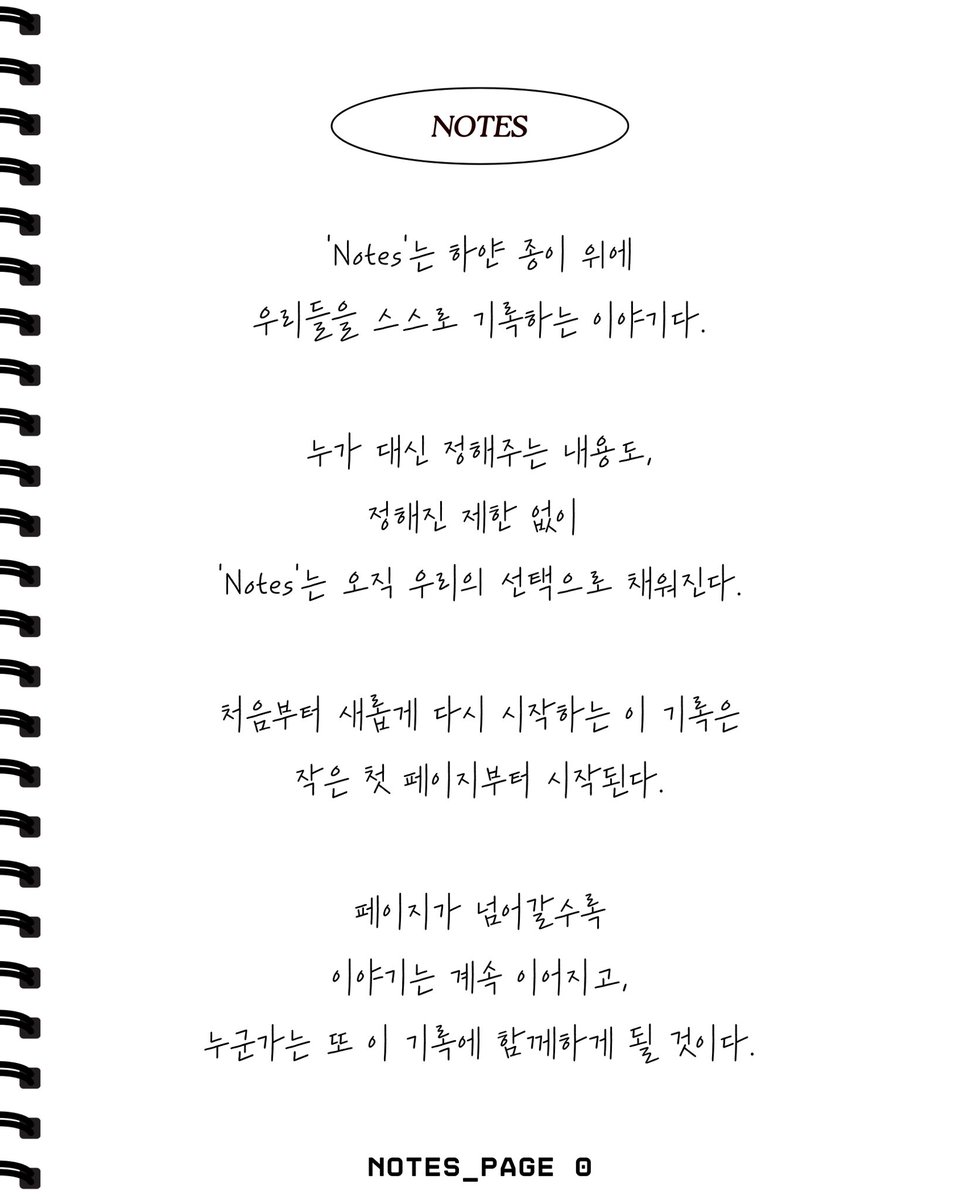 NOTES
'Notes'는 하얀 종이 위에
우리들을 스스로 기록하는 이야기다.
누가 대신 정해주는 내용도,
정해진 제한 없이
'Notes'는 오직 우리의 선택으로 채워진다.
처음부터 새롭게 다시 시작하는 이 기록은
작은 첫 페이지부터 시작된다.
페이지가 넘어갈수록
이야기는 계속 이어지고,
누군가는 또 이 기록에 함께하게 될 것이다.
NOTES_PAGE 0